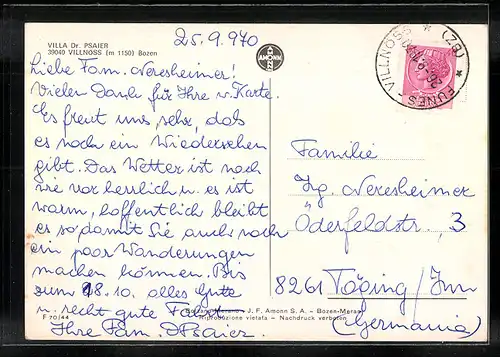 VILLA Dr. PSAIER
39040 VILLNÖSS (m 1150) Bozen
25.9.970
Liebe Fam. Neresheimer!
Vielen Dank für Ihre w. Karte.
Es freut uns sehr, daß
es noch ein Wiedersehen
gibt. Das Wetter ist nach
wie vor herrlich u. es ist
warm, hoffentlich bleibt
es so damit Sie auch noch
ein paar Wanderungen
machen können. Bis
zum 18.10. alles Gute
u. recht gute
Ihre Fam. Psaier
F 70/44
AMONN
FUNES - VILLNÖSS * (BZ) *
Familie
Neresheimer
Öderfeldstr. 3
8261 Töging/Inn
(Germania)
J. F. Amonn S. A. – Bozen-Meran
Riproduzione vietata – Nachdruck verboten